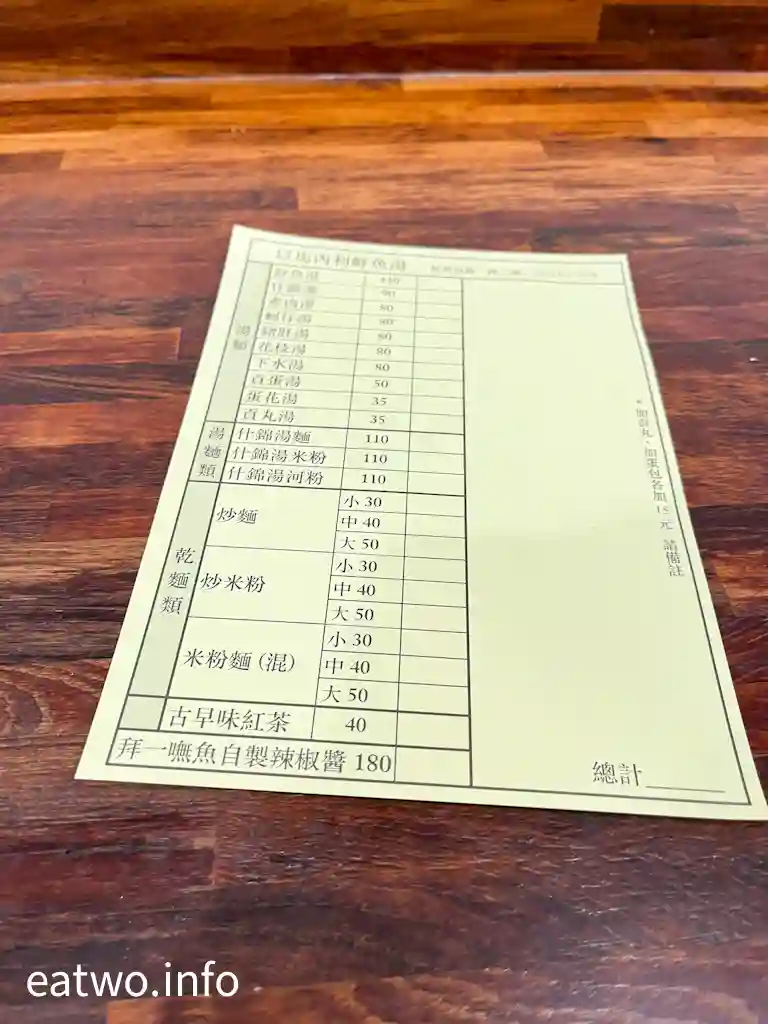 湯類
豬肝湯 80
花枝湯 80
下水湯 80
貢蛋湯 50
蛋花湯 35
貢丸湯 35
湯麵類
什錦湯麵 110
什錦湯米粉 110
什錦湯河粉 110
乾麵類
炒麵
小 30
中 40
大 50
炒米粉
小 30
中 40
大 50
米粉麵(混)
小 30
中 40
大 50
古早味紅茶 40
拜一嘸魚自製辣椒醬 180
*加貢丸、加蛋包各加15元 請備註
總計
eatwo.info